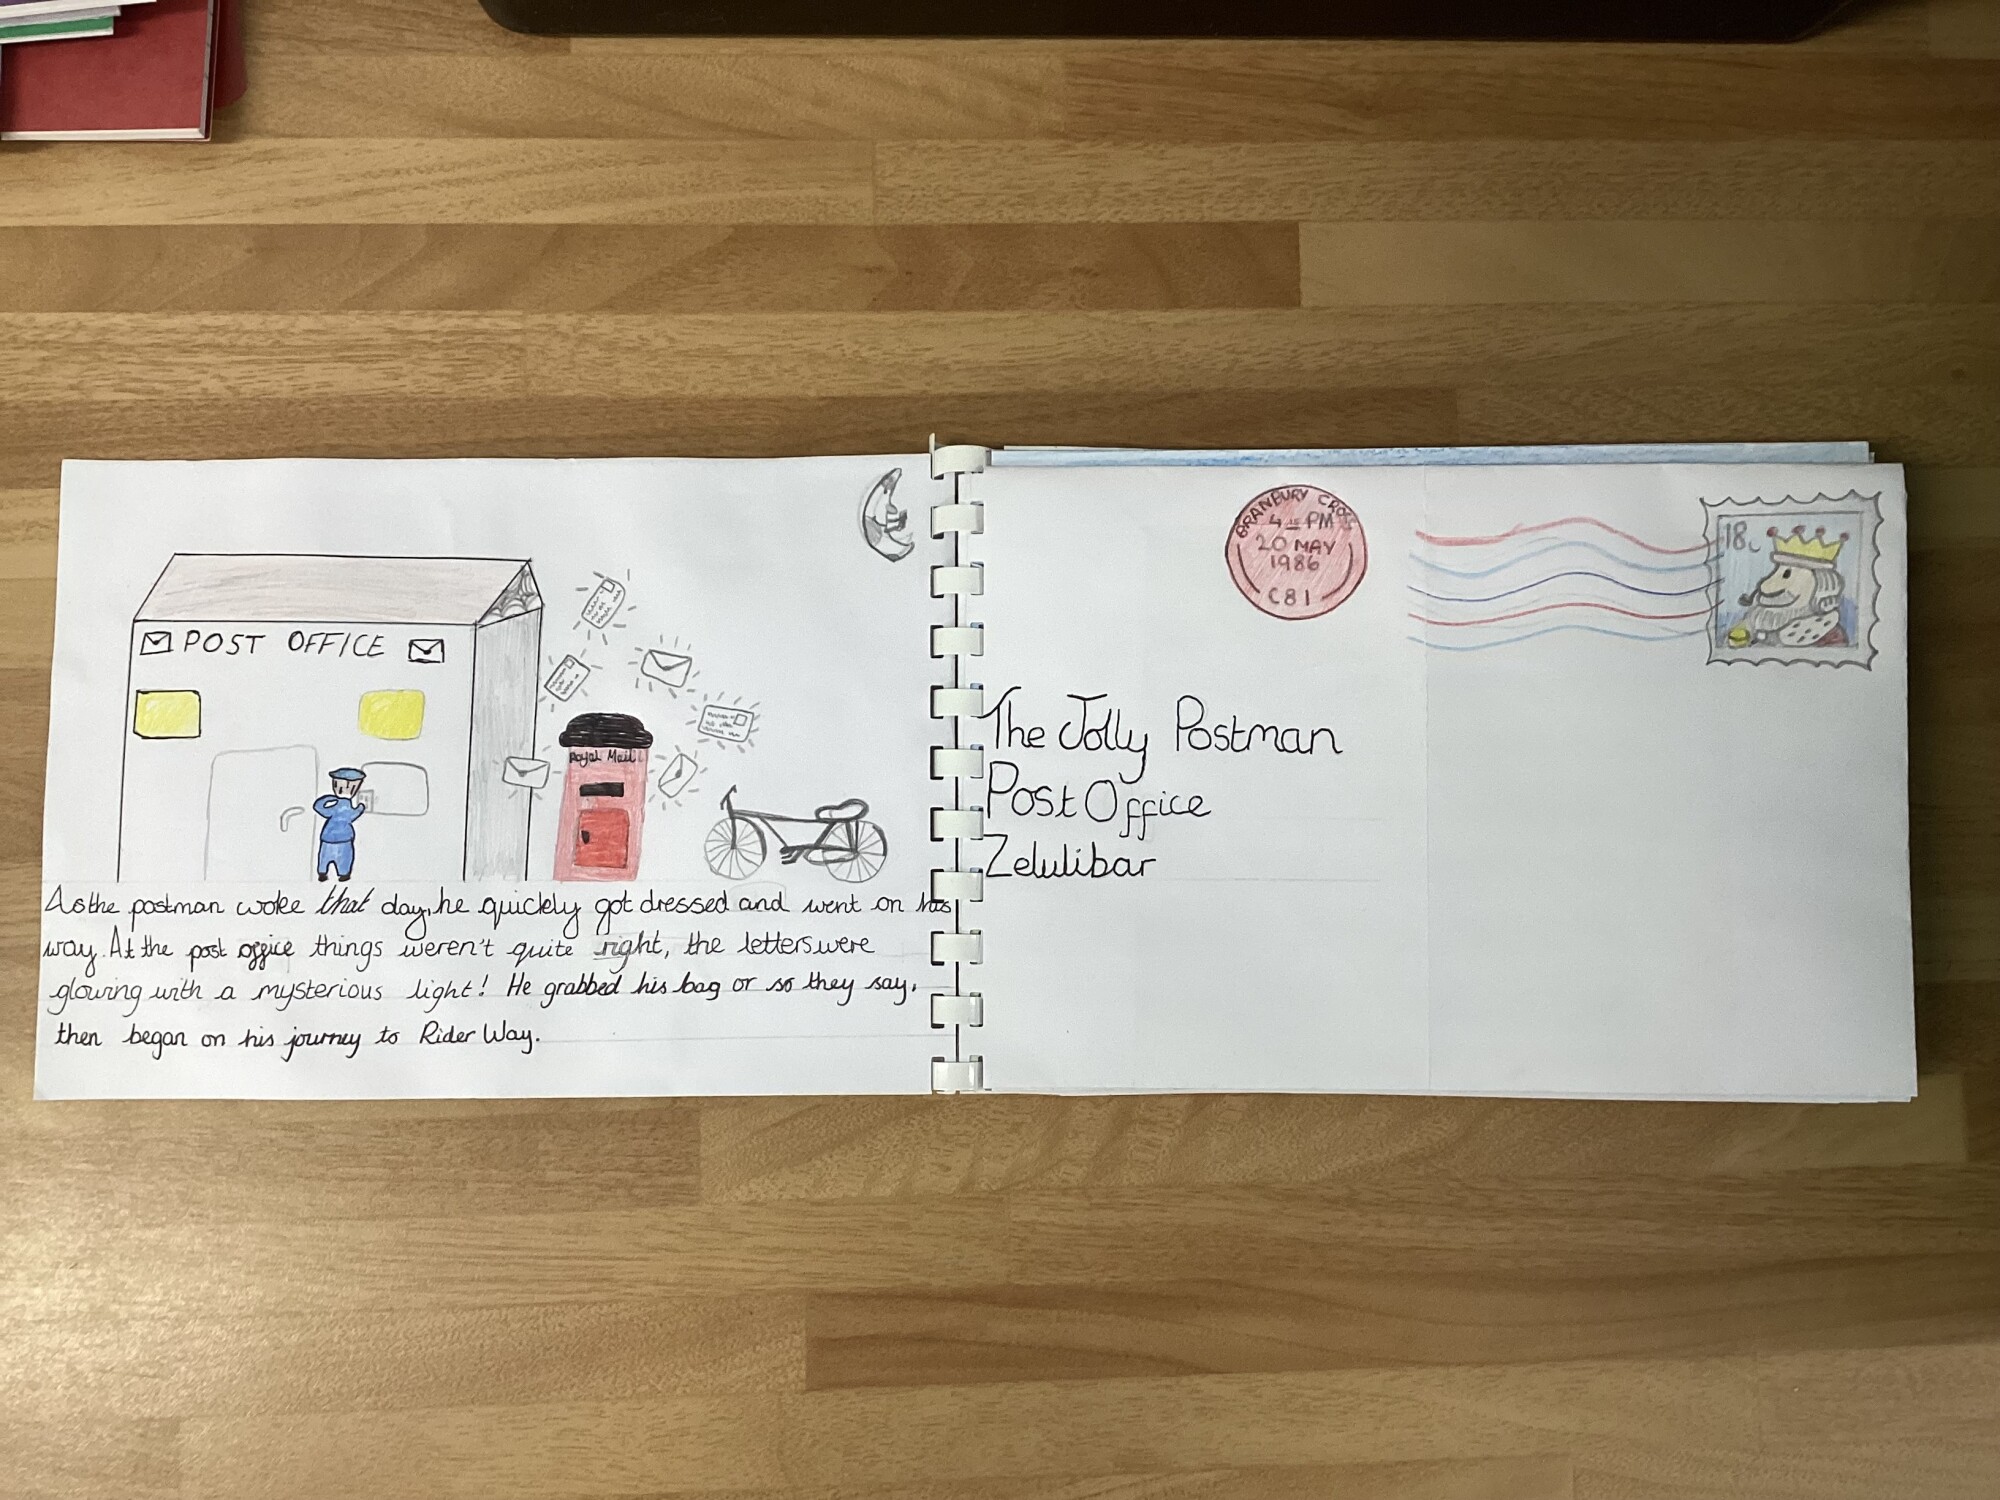 POST OFFICE
Royal Mail
As the postman woke that day, he quickly got dressed and went on his
way. At the post office things weren't quite right, the letters were
glowing with a mysterious light! He grabbed his bag or so they say,
then began on his journey to Rider Way.
BRANBURY CROSS
4 = PM
20 MAY
1986
C81
18c
The Jolly Postman
Post Office
Zelulibar